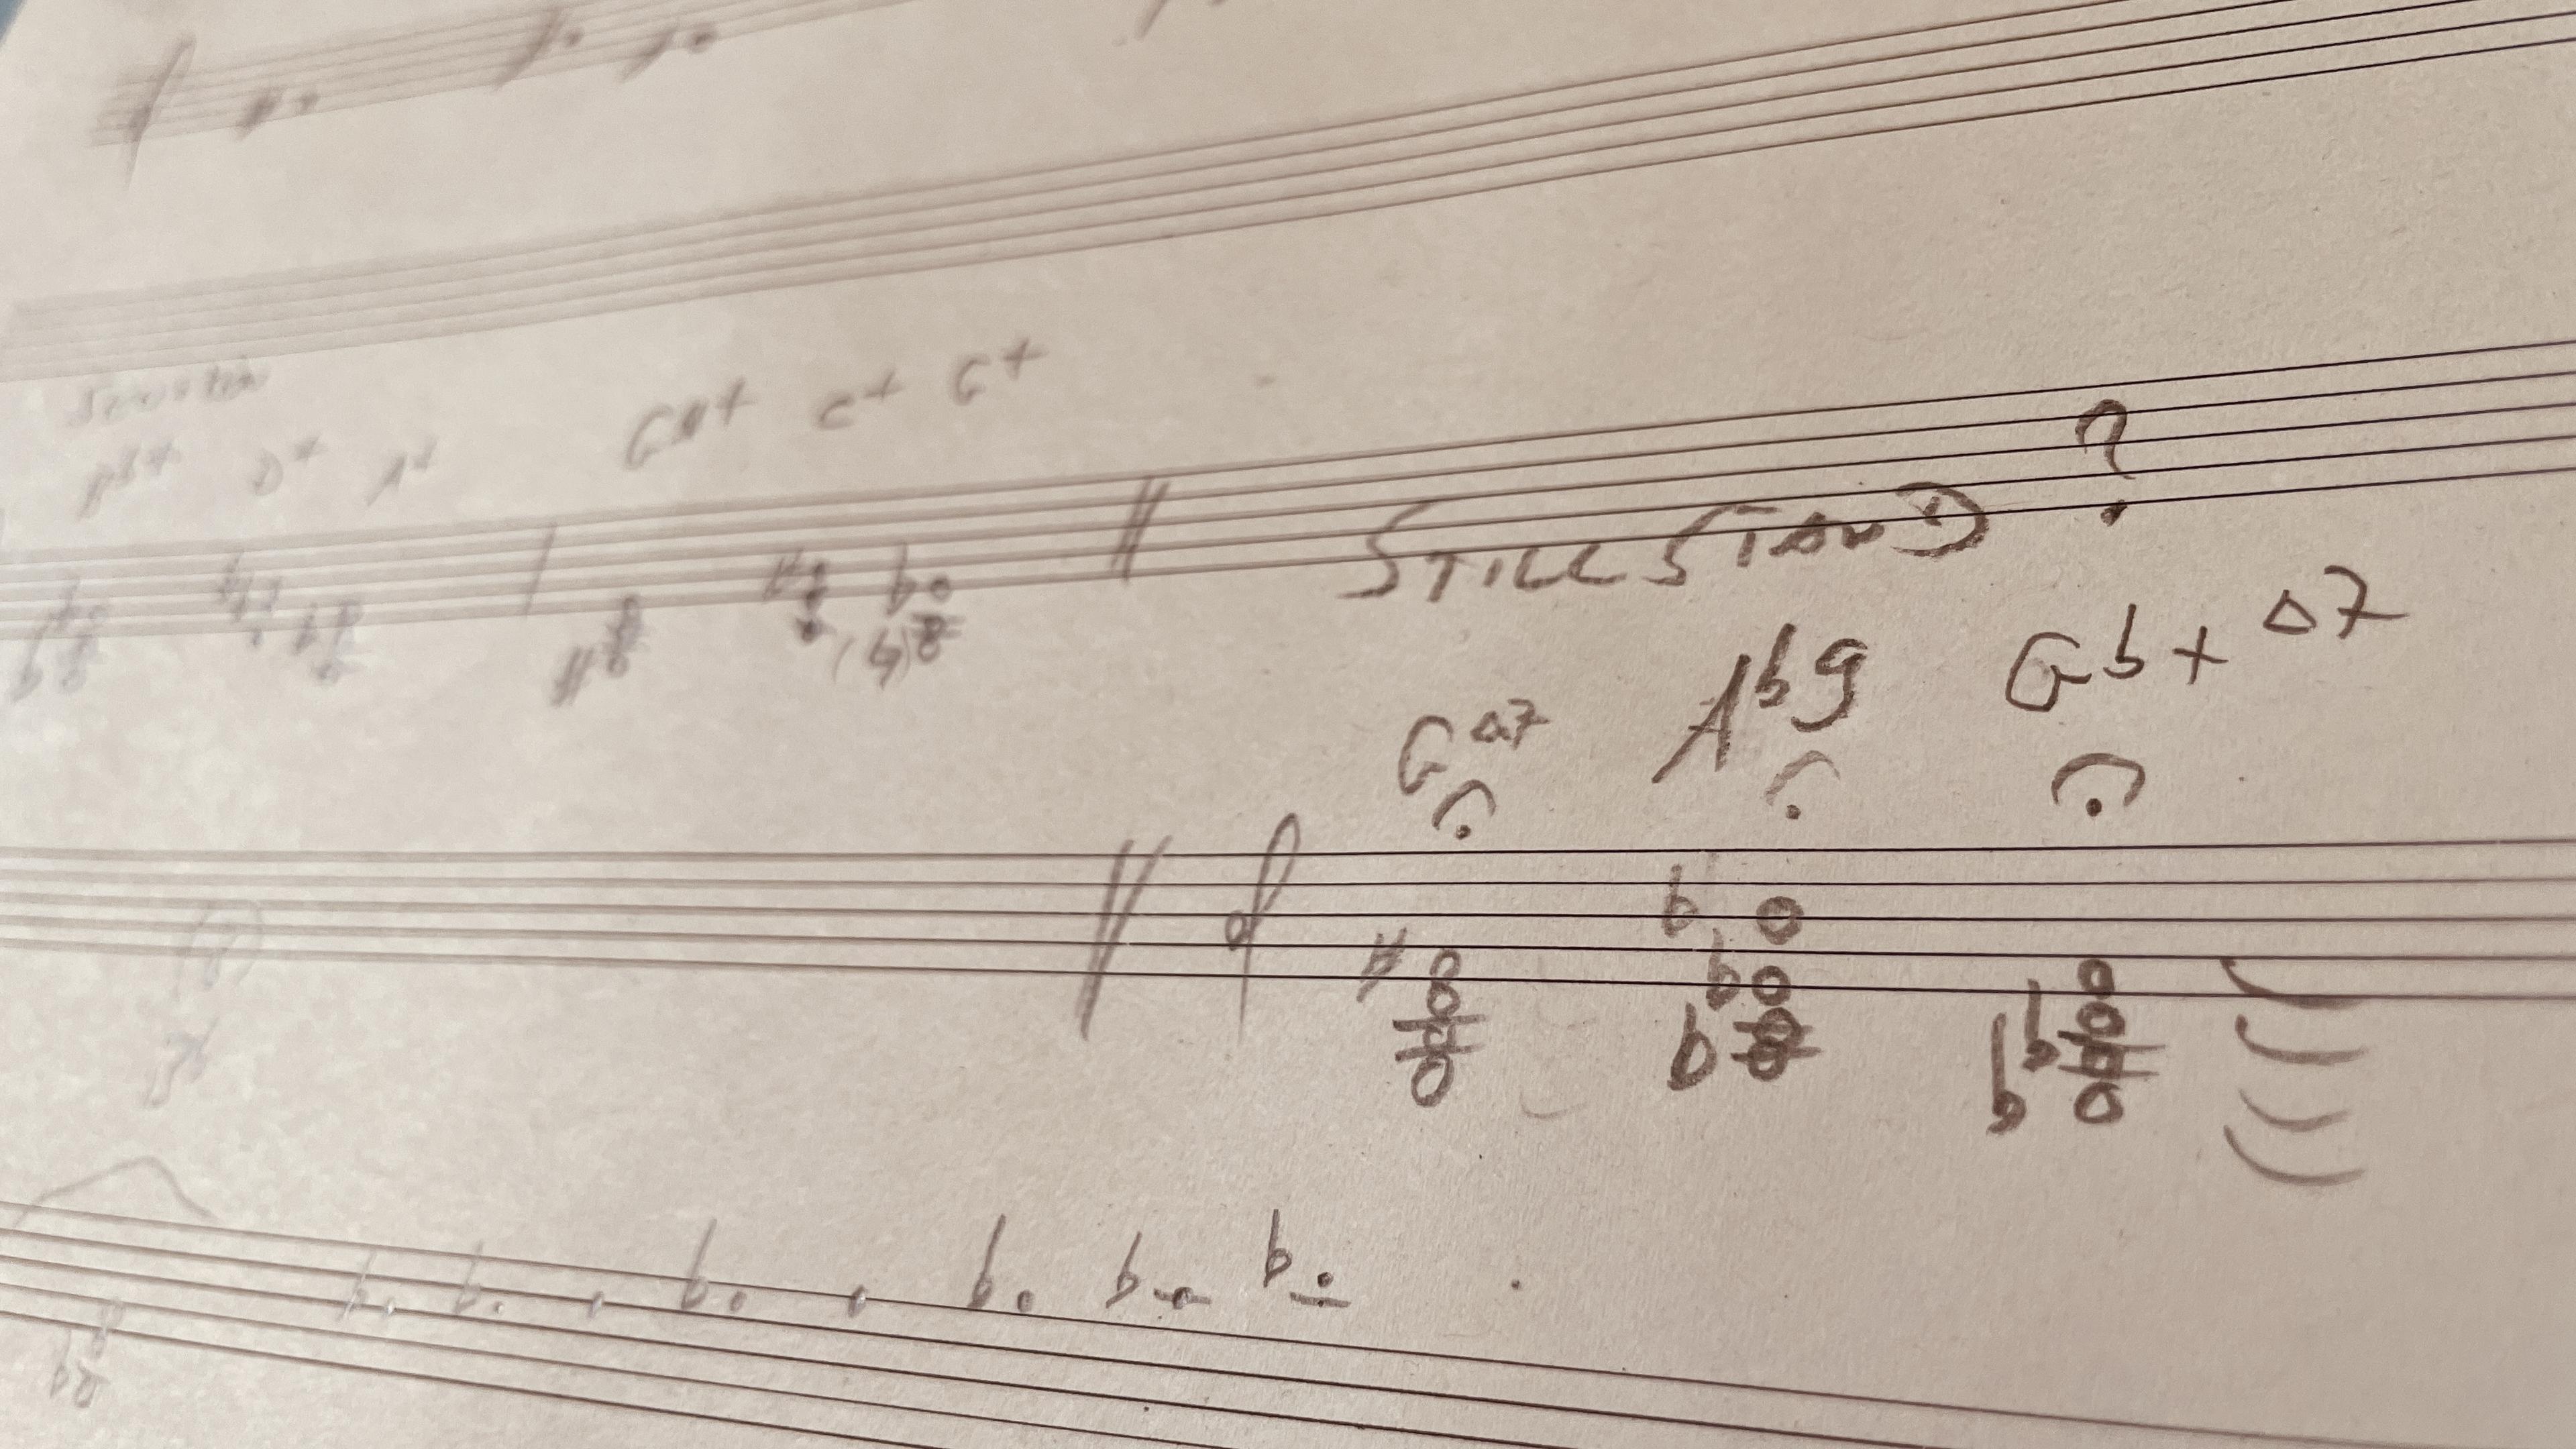 G#+ C+ G+
STILLSTAND ?
GΔ7 Ab9 Gb+Δ7